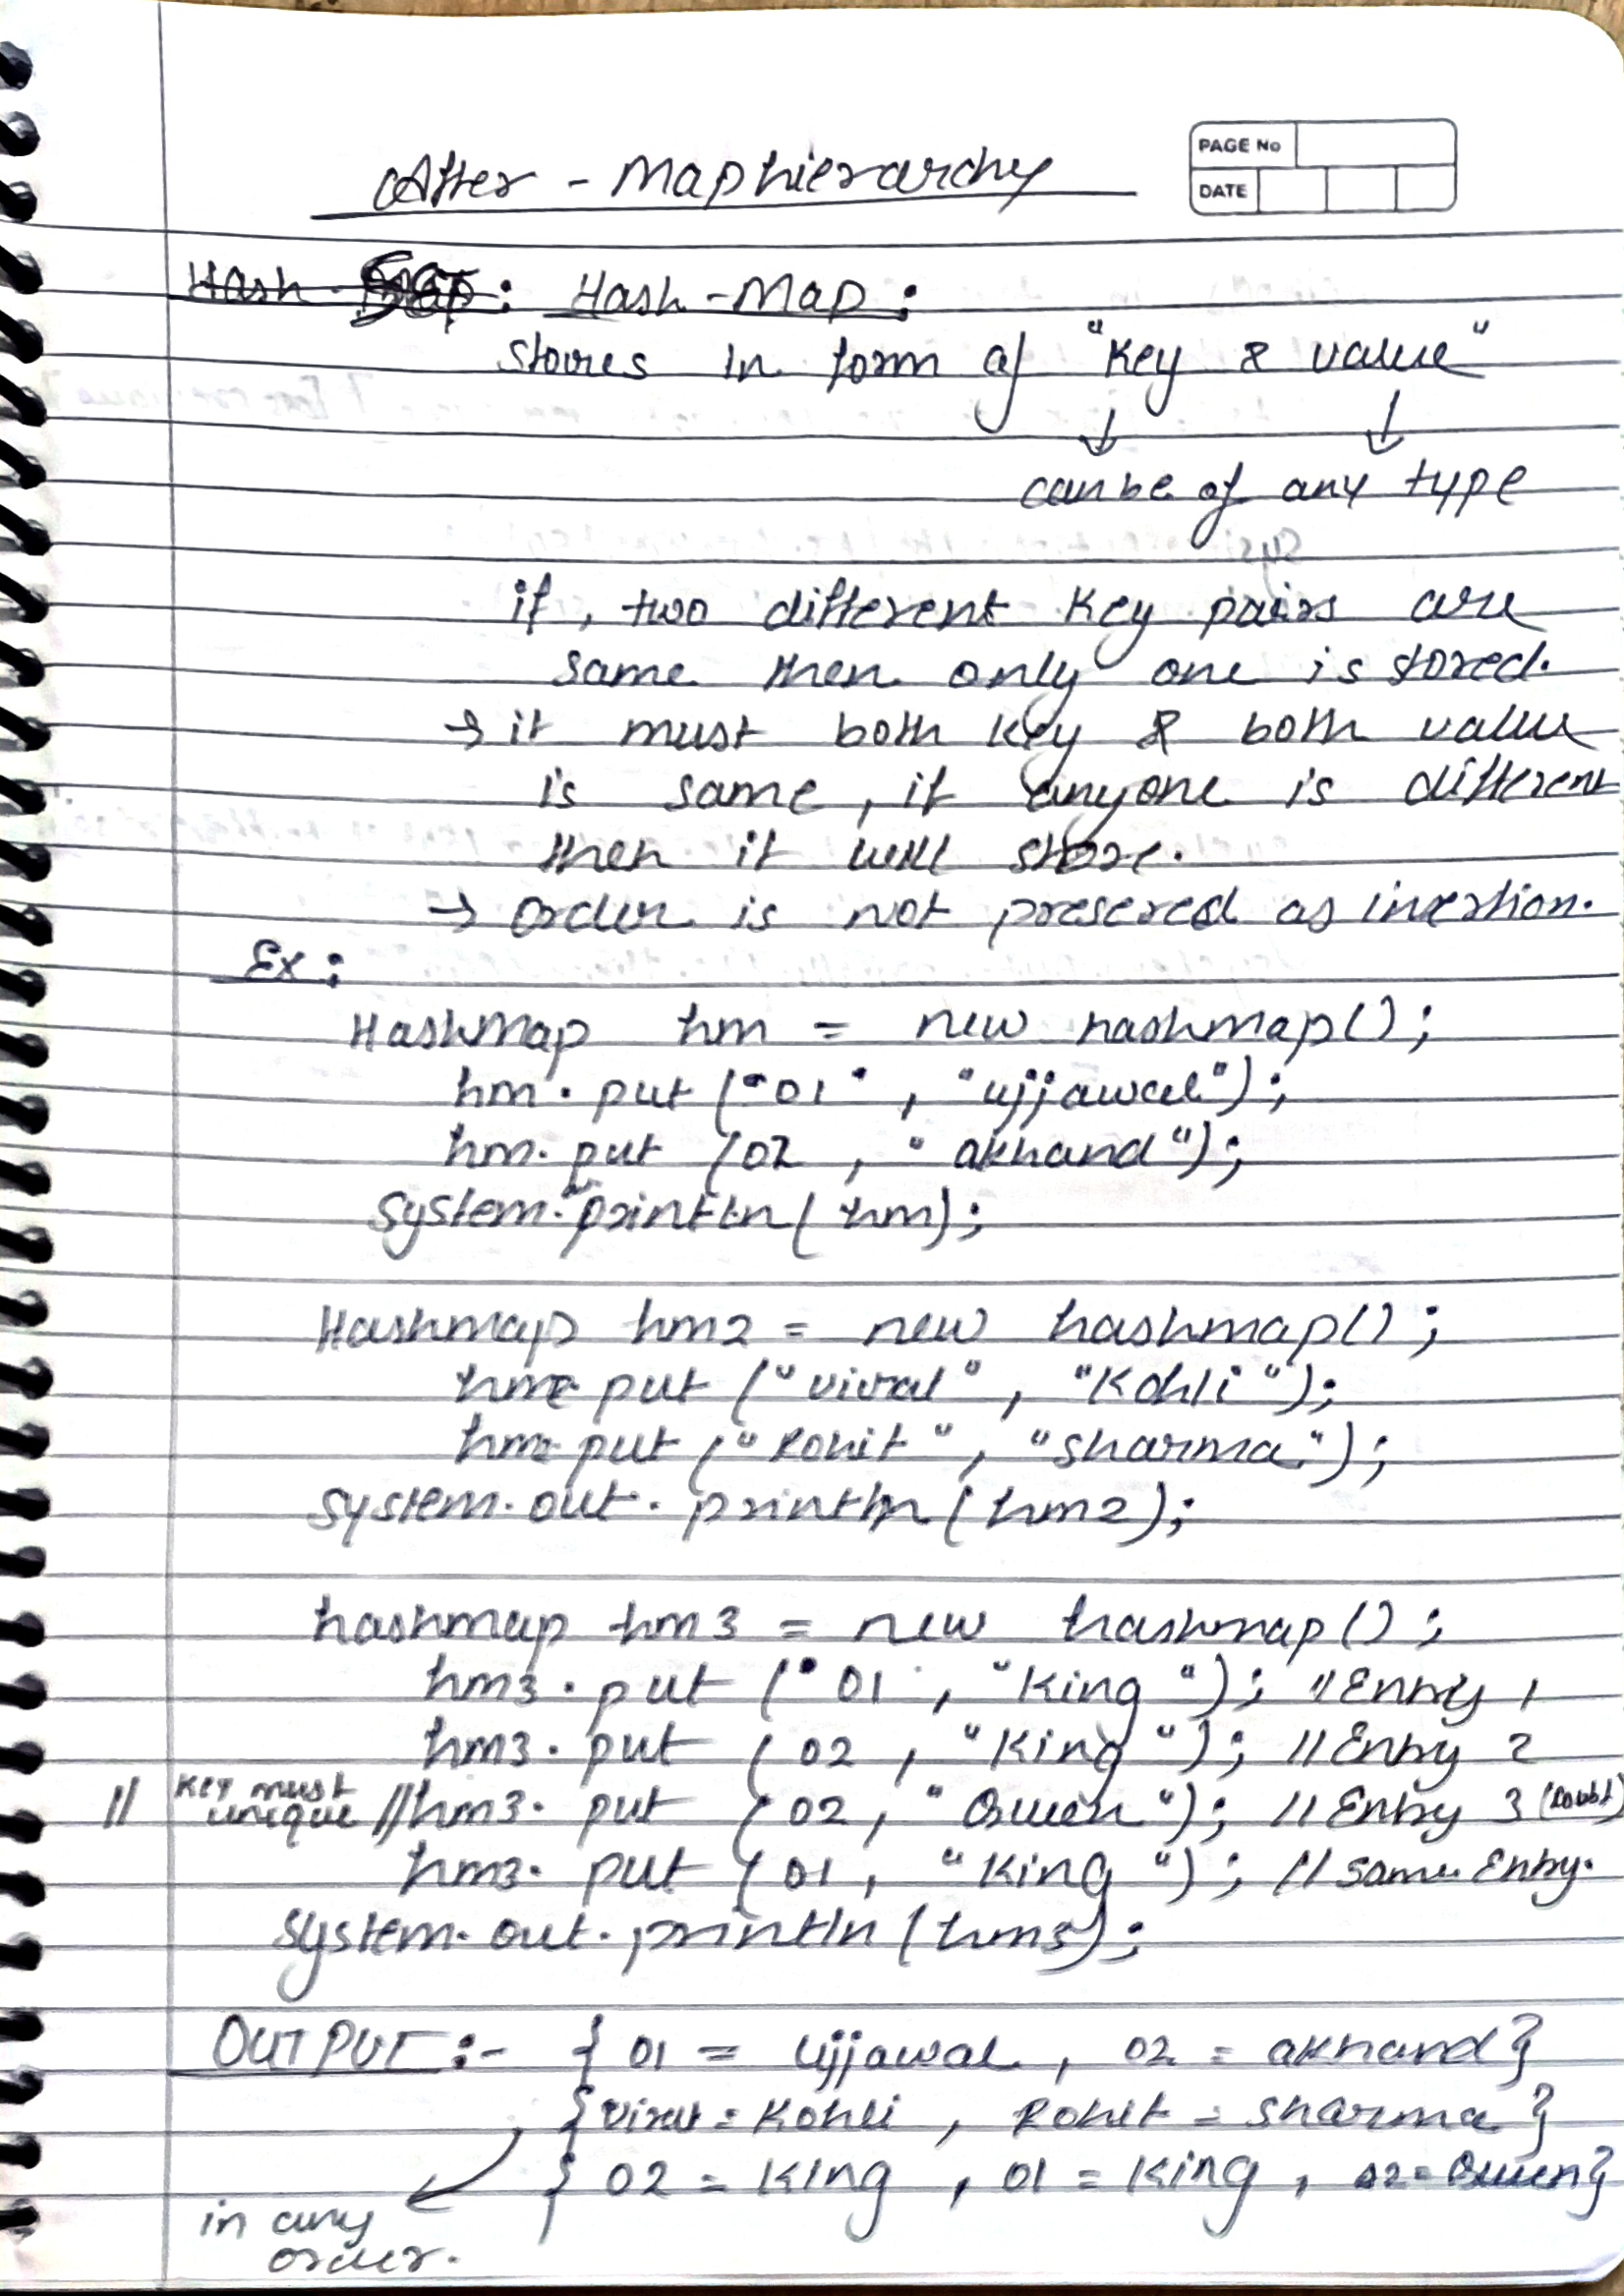 After - Maphierarchy
PAGE No
DATE
Hash - : Hash - Map :
stores in form of "Key & value"
↓ ↓
can be of any type
if, two different key pairs are
same then only one is stored.
→ it must both key & both value
is same, if anyone is different
then it will store.
→ order is not presered as insertion.
Ex :
HashMap hm = new hashmap();
hm. put ("01", "ujjawal");
hm. put (02, "akhand");
System. println(hm);
Hashmap hm2 = new hashmap();
hm2 put ("virat", "Kohli");
hm2 put ("Rohit", "sharma");
system.out.println(hm2);
hashmap hm3 = new hashmap();
hm3. put ("01, "King"); // Entry 1
hm3. put (02, "King"); // Entry 2
// Key must unique // hm3. put (02, "Queen"); // Entry 3 (Doubt)
hm3. put (01, "King"); // same Entry.
System.out.println(hm3);
OUTPUT :- { 01 = ujjawal, 02 = akhand}
{virat = Kohli, Rohit = sharma}
{ 02 = King, 01 = King, 02 = Queen}
in any
order.